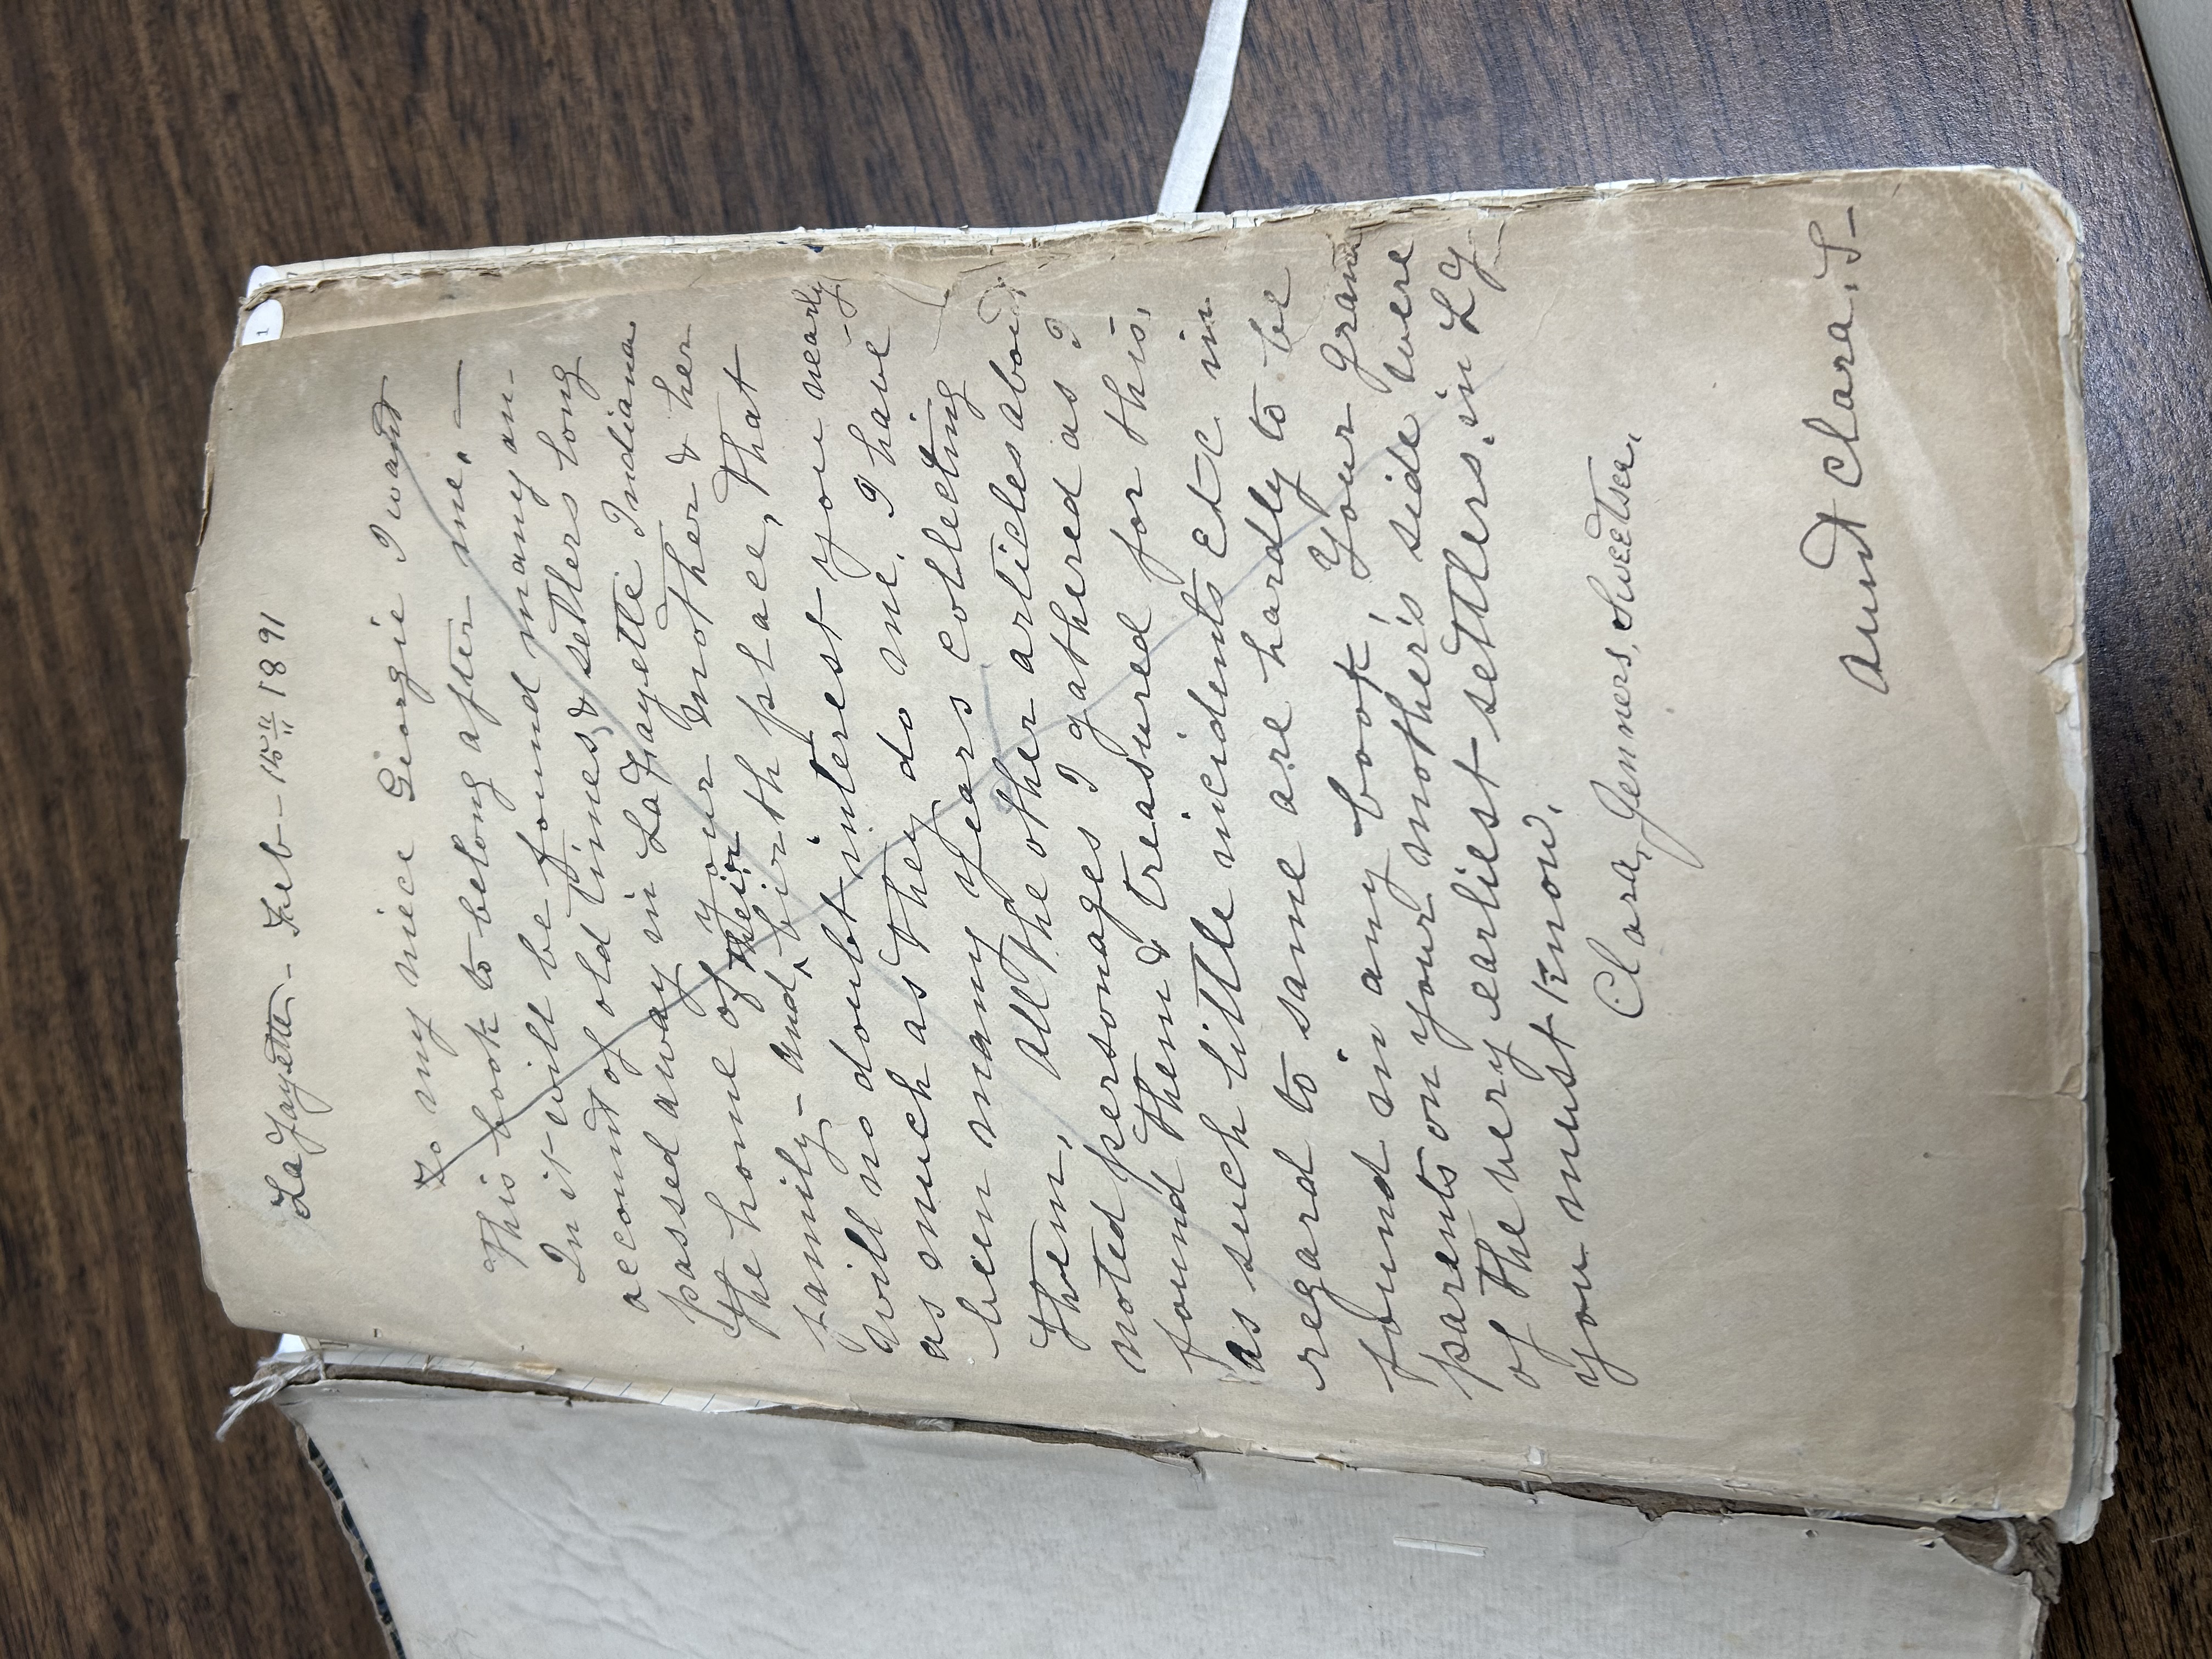 1
LaFayette - Feb - 15th 1891
To my niece Georgie I want
This book to belong after me. —
In it will be found many an-
account of old times, & settlers long
passed away in LaFayette Indiana
the home of your mother & her
family - and their birth place, that
will no doubt interest you nearly
as much as they do me. I have
been many years collecting
them. All the other articles about
noted personages I gathered as I
found them & treasured for this.
as such little incidents etc in
regard to same are hardly to be
found in any book. Your Grand
parents on your mother's side were
of the very earliest settlers. in L F
you must know.
Clara, Jenners, Sweetser.
Aunt Clara. S -